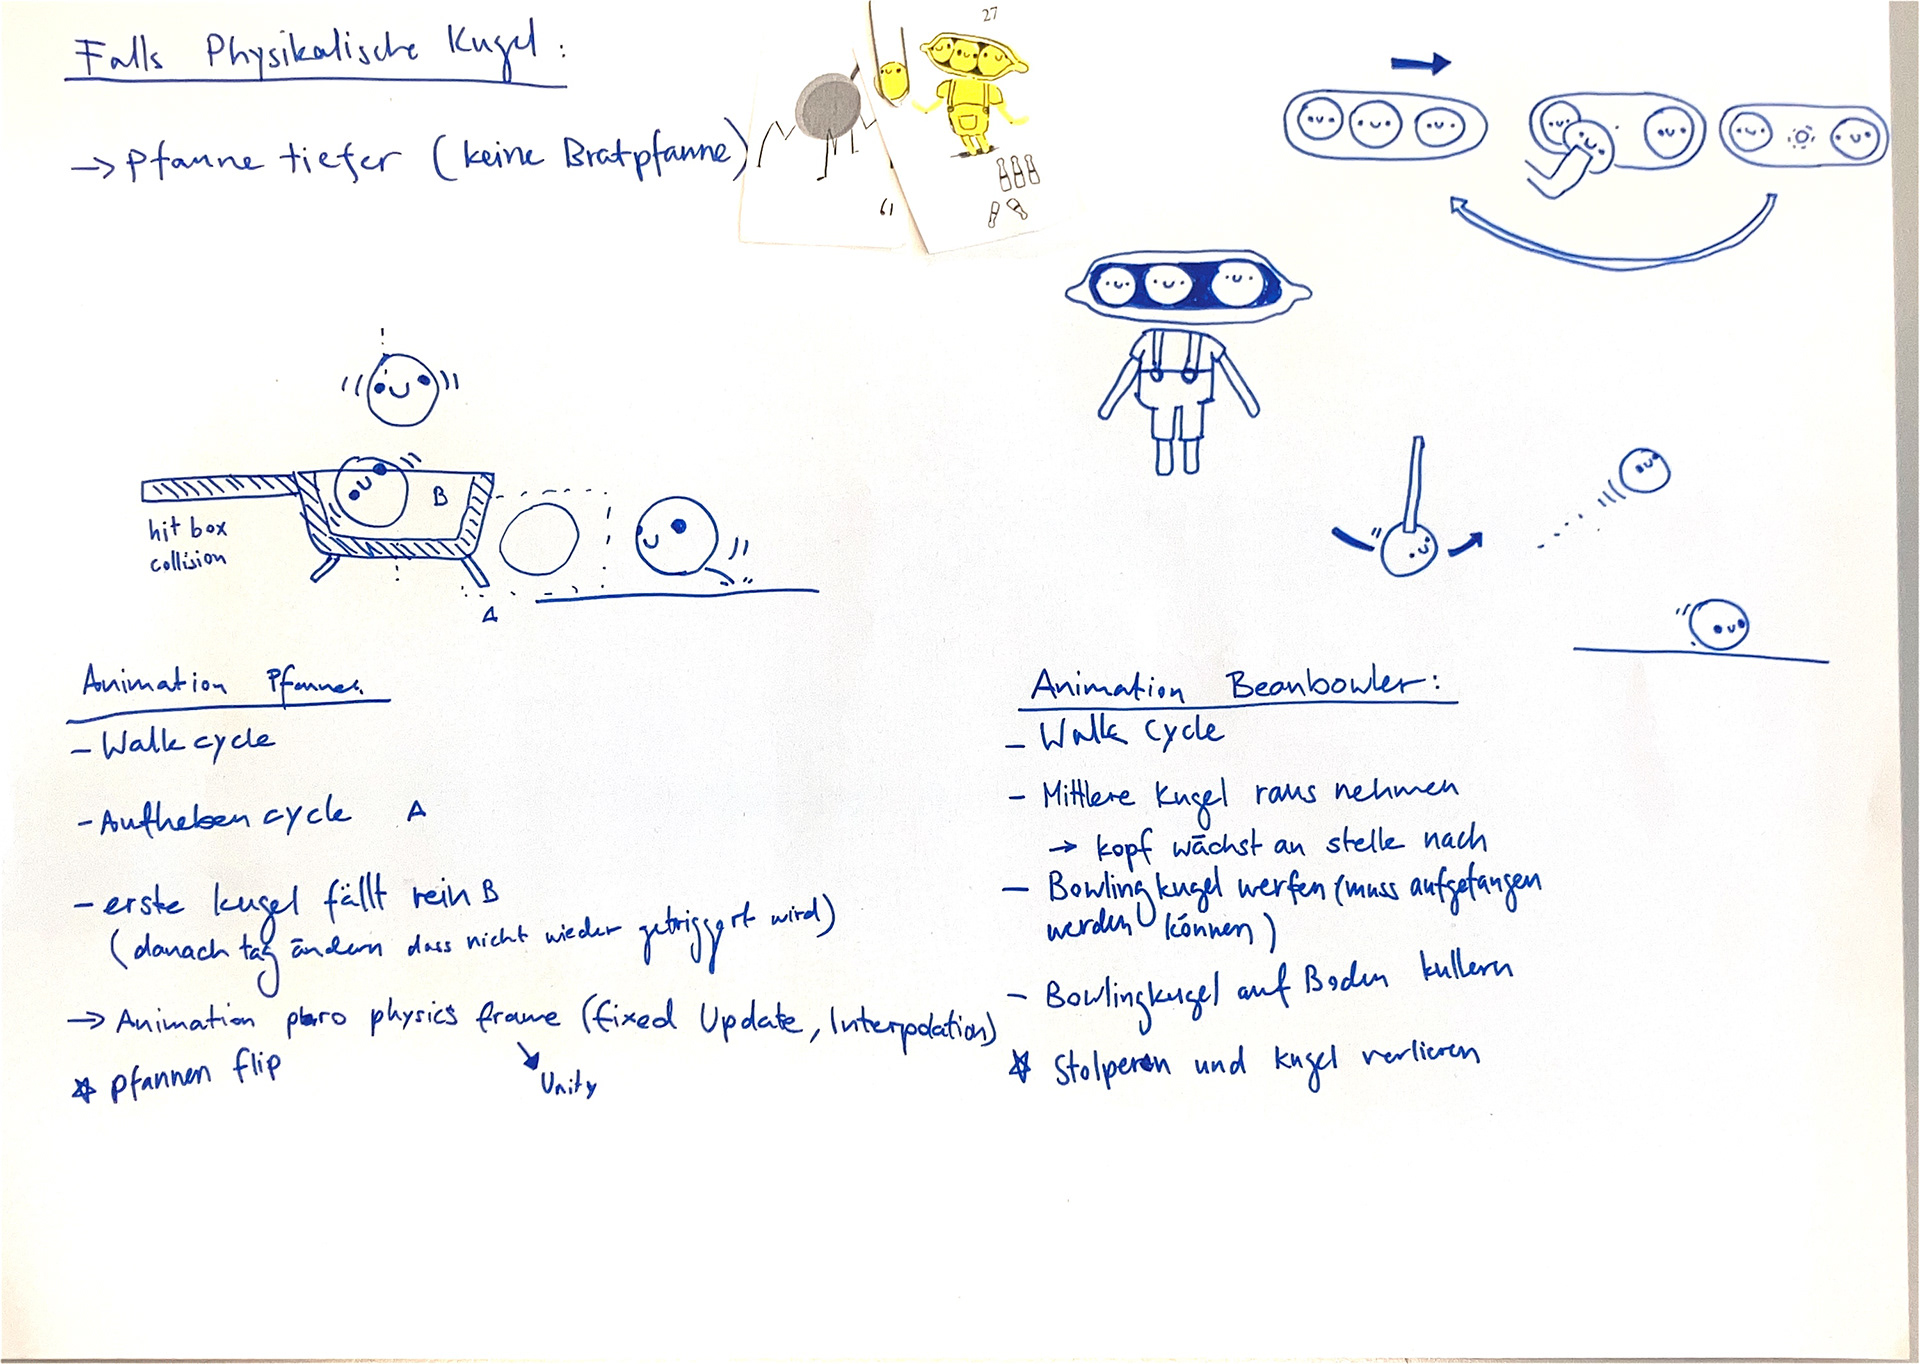 Falls Physikalische Kugel:
→ Pfanne tiefer (keine Bratpfanne)
61
27
B
hit box
collision
A
Animation Pfanne:
- Walk cycle
- Aufheben cycle A
- erste kugel fällt rein B
(danach tag ändern dass nicht wieder getriggert wird)
→ Animation pro physics frame (fixed Update, Interpolation)
Unity
☆ pfannen flip
Animation Beanbowler:
- Walk Cycle
- Mittlere Kugel raus nehmen
→ kopf wächst an stelle nach
- Bowlingkugel werfen (muss aufgefangen
werden können)
- Bowlingkugel auf Boden kullern
☆ Stolpern und kugel verlieren